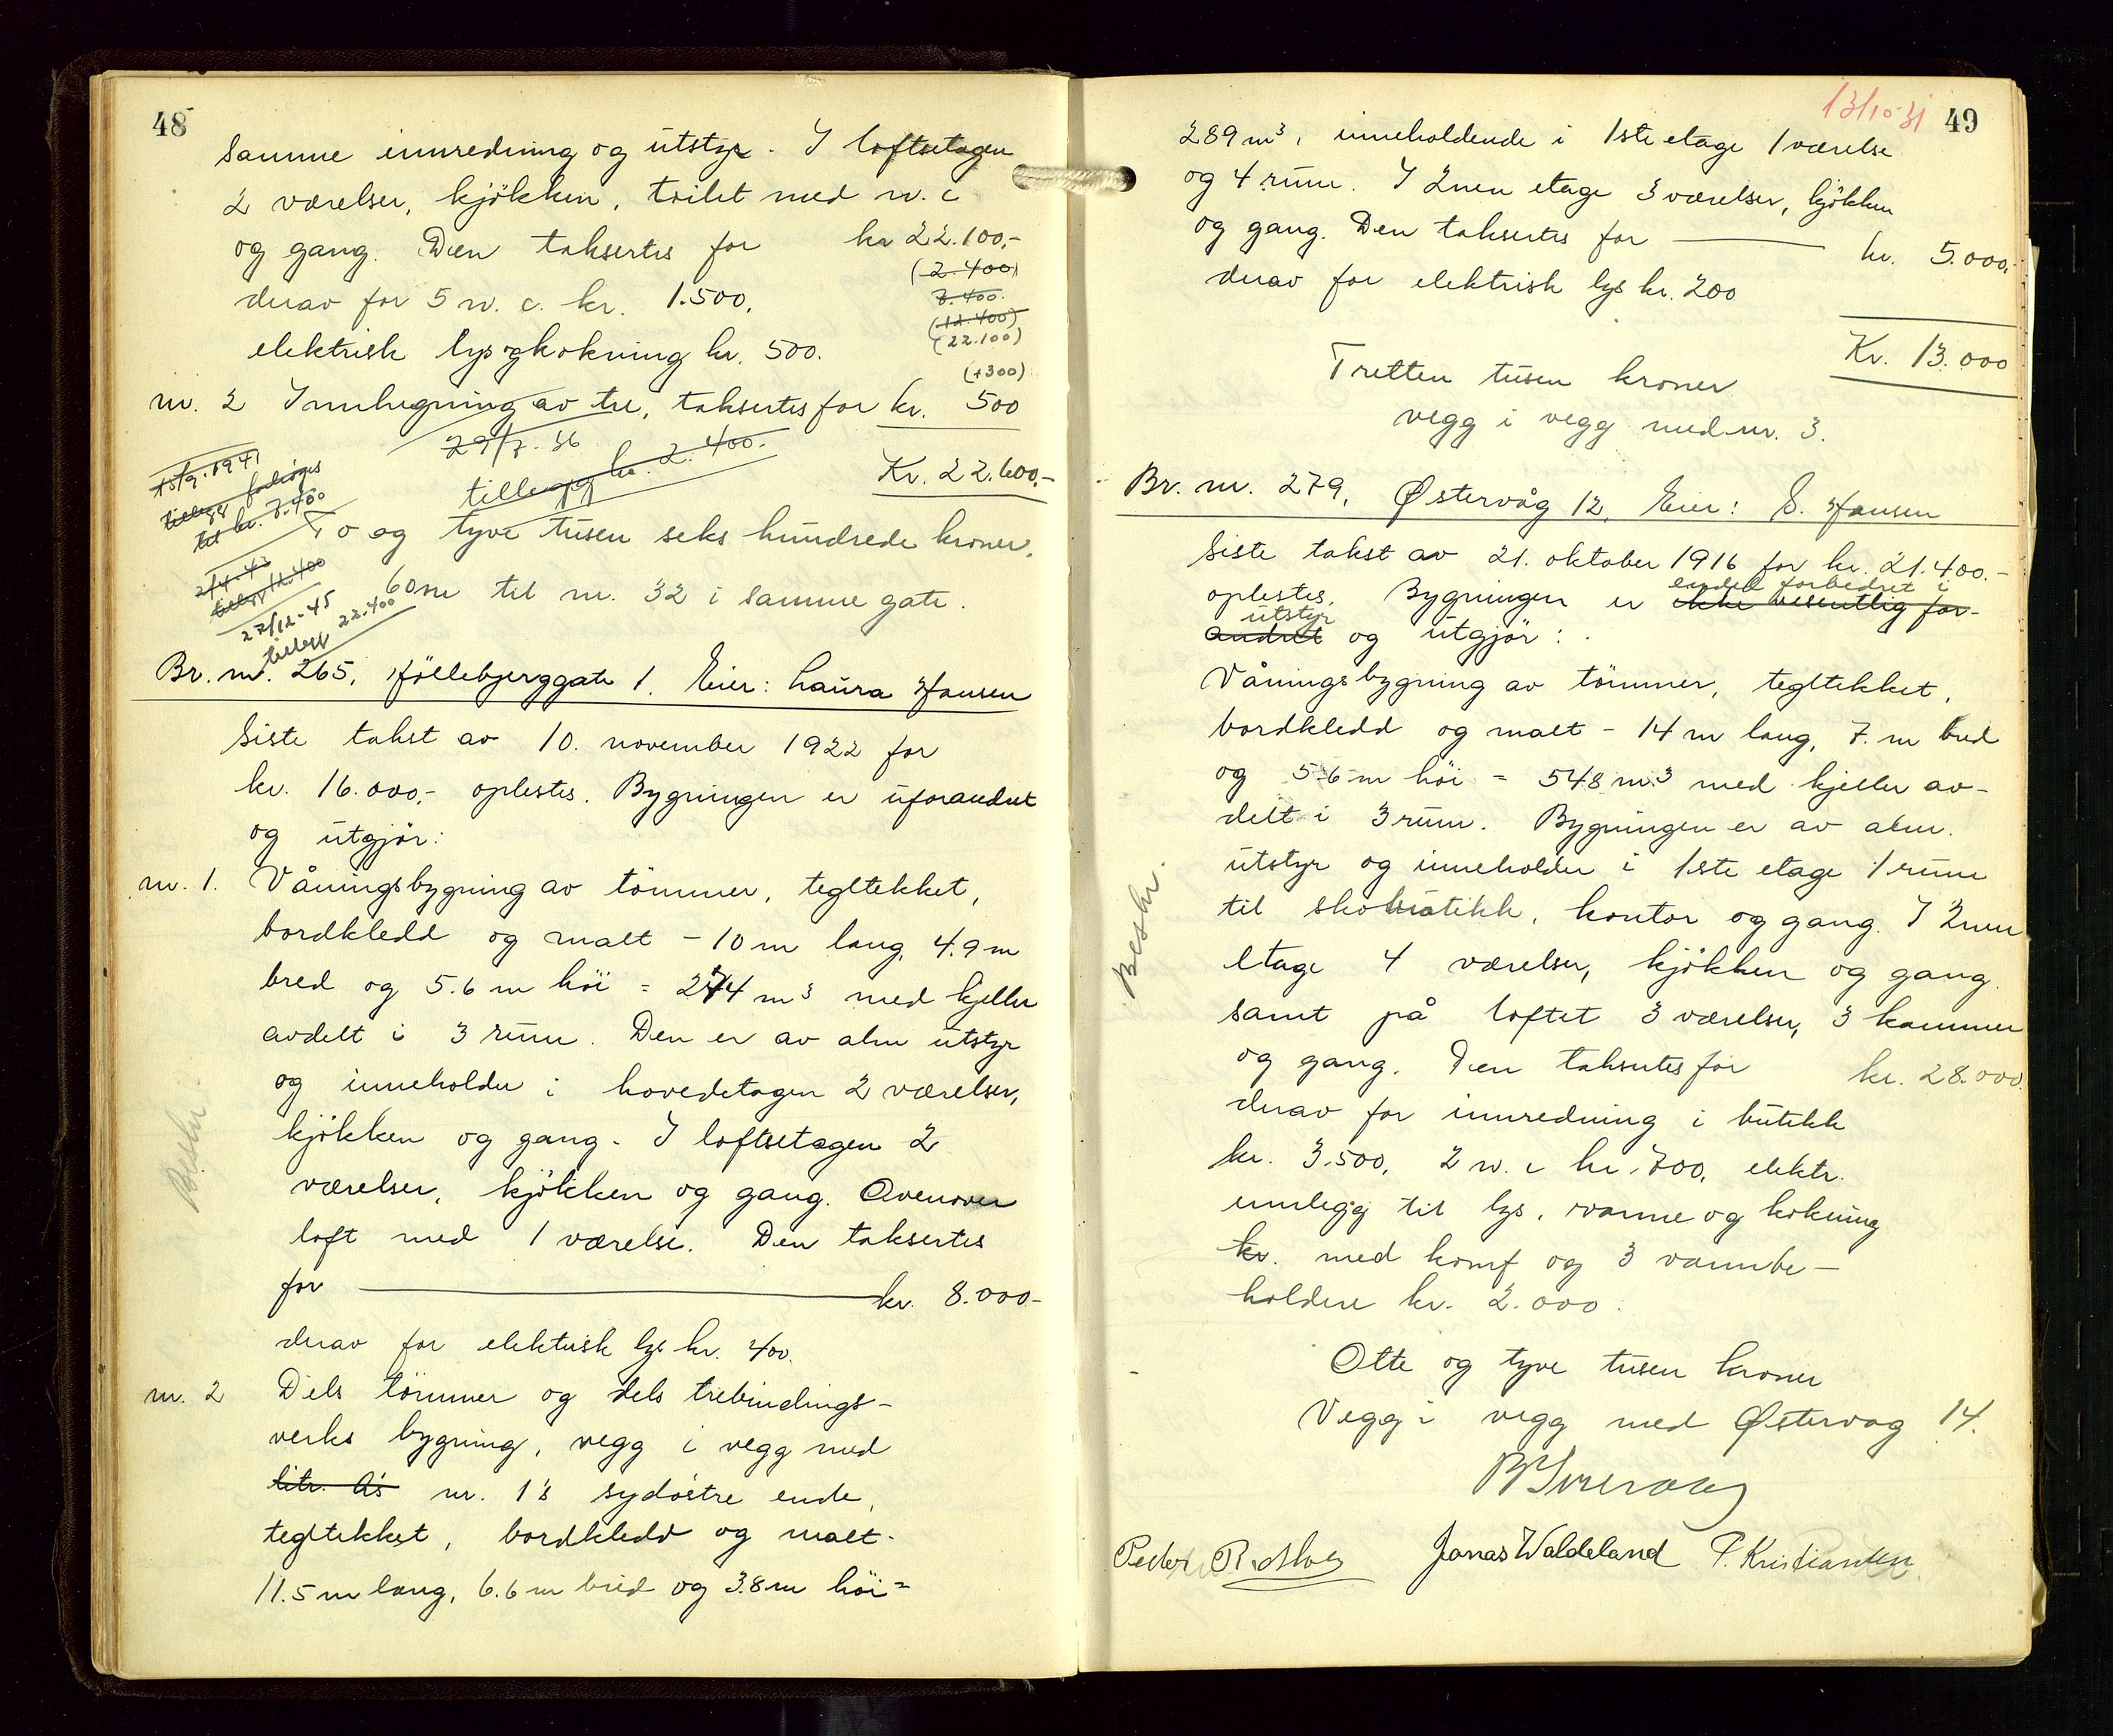 48
samme innredning og utstyr. I loftsetagen
2 værelser, kjökken, toilet med w.c
og gang. Den taksertes for kr 22.100,-
(2.400)
derav for 5 w.c. kr. 1.500,
7.400.
(12.400)
(22.100)
elektrisk lys og kokning kr. 500.
(+300)
nr. 2 Innhegning av tre, taksertes for kr. 500
29/7-36
tillegg kr. 2.400.-
Kr. 22.600,-
15/9-1941
tillegg forhöyes
til kr. 7.400
To og tyve tusen seks hundrede kroner.
2/4-43
tillegg 12.400
60m til nr. 32 i samme gate.
27/12-45
tillegg 22.400
Br. nr. 265, Föllebjerggate 1. Eier: Laura Hansen
Siste takst av 10. november 1922 for
kr. 16.000,- oplestes. Bygningen er uforandret
og utgjör:
nr. 1. Våningsbygning av tömmer, tegltekket,
bordkledd og malt - 10 m lang, 4.9 m
bred og 5.6 m höi = 274 m³ med kjeller
avdelt i 3 rum. Den er av alm utstyr
og inneholder i hovedetagen 2 værelser,
kjökken og gang. I loftsetagen 2
værelser, kjökken og gang. Ovenover
loft med 1 værelse. Den taksertes
for kr. 8.000-
derav for elektrisk lys kr. 400.
Beskr.
nr. 2 Dels tömmer og dels trebindings-
verks bygning, vegg i vegg med
litr. A's nr. 1's sydöstre ende,
tegltekket, bordkledd og malt-
11.5 m lang, 6.6 m bred og 3.8 m höi =
13/10-31
49
289 m³, inneholdende i 1ste etage 1 værelse
og 4 rum. I 2nen etage 3 værelser, kjökken
og gang. Den taksertes for kr. 5.000,-
derav for elektrisk lys kr. 200
Kr. 13.000
Tretten tusen kroner
vegg i vegg med nr. 3.
Br. nr. 279, Østervåg 12, Eier: S. Hansen
Siste takst av 21. oktober 1916 for kr. 21.400.-
endel forbedret i
oplestes. Bygningen er ikke vesentlig for-
utstyr
andret og utgjör:
Våningsbygning av tömmer, tegltekket,
bordkledd og malt - 14 m lang, 7. m bred
og 5.6 m höi = 548 m³ med kjeller av-
delt i 3 rum. Bygningen er av alm.
utstyr og inneholder i 1ste etage 1 rum
til skobutikk, kontor og gang. I 2nen
etage 4 værelser, kjökken og gang
samt på loftet 3 værelser, 3 kammer
og gang. Den taksertes for kr. 28.000.
derav for innredning i butikk
kr. 3.500, 2 w.c kr. 700, elektr.
innlegg til lys, varme og kokning
kr. med komf og 3 vannbe-
holdere kr. 2.000.
Beskr.
Otte og tyve tusen kroner
Vegg i vegg med Østervag 14.
Jonas Waldeland P. Kristiansen